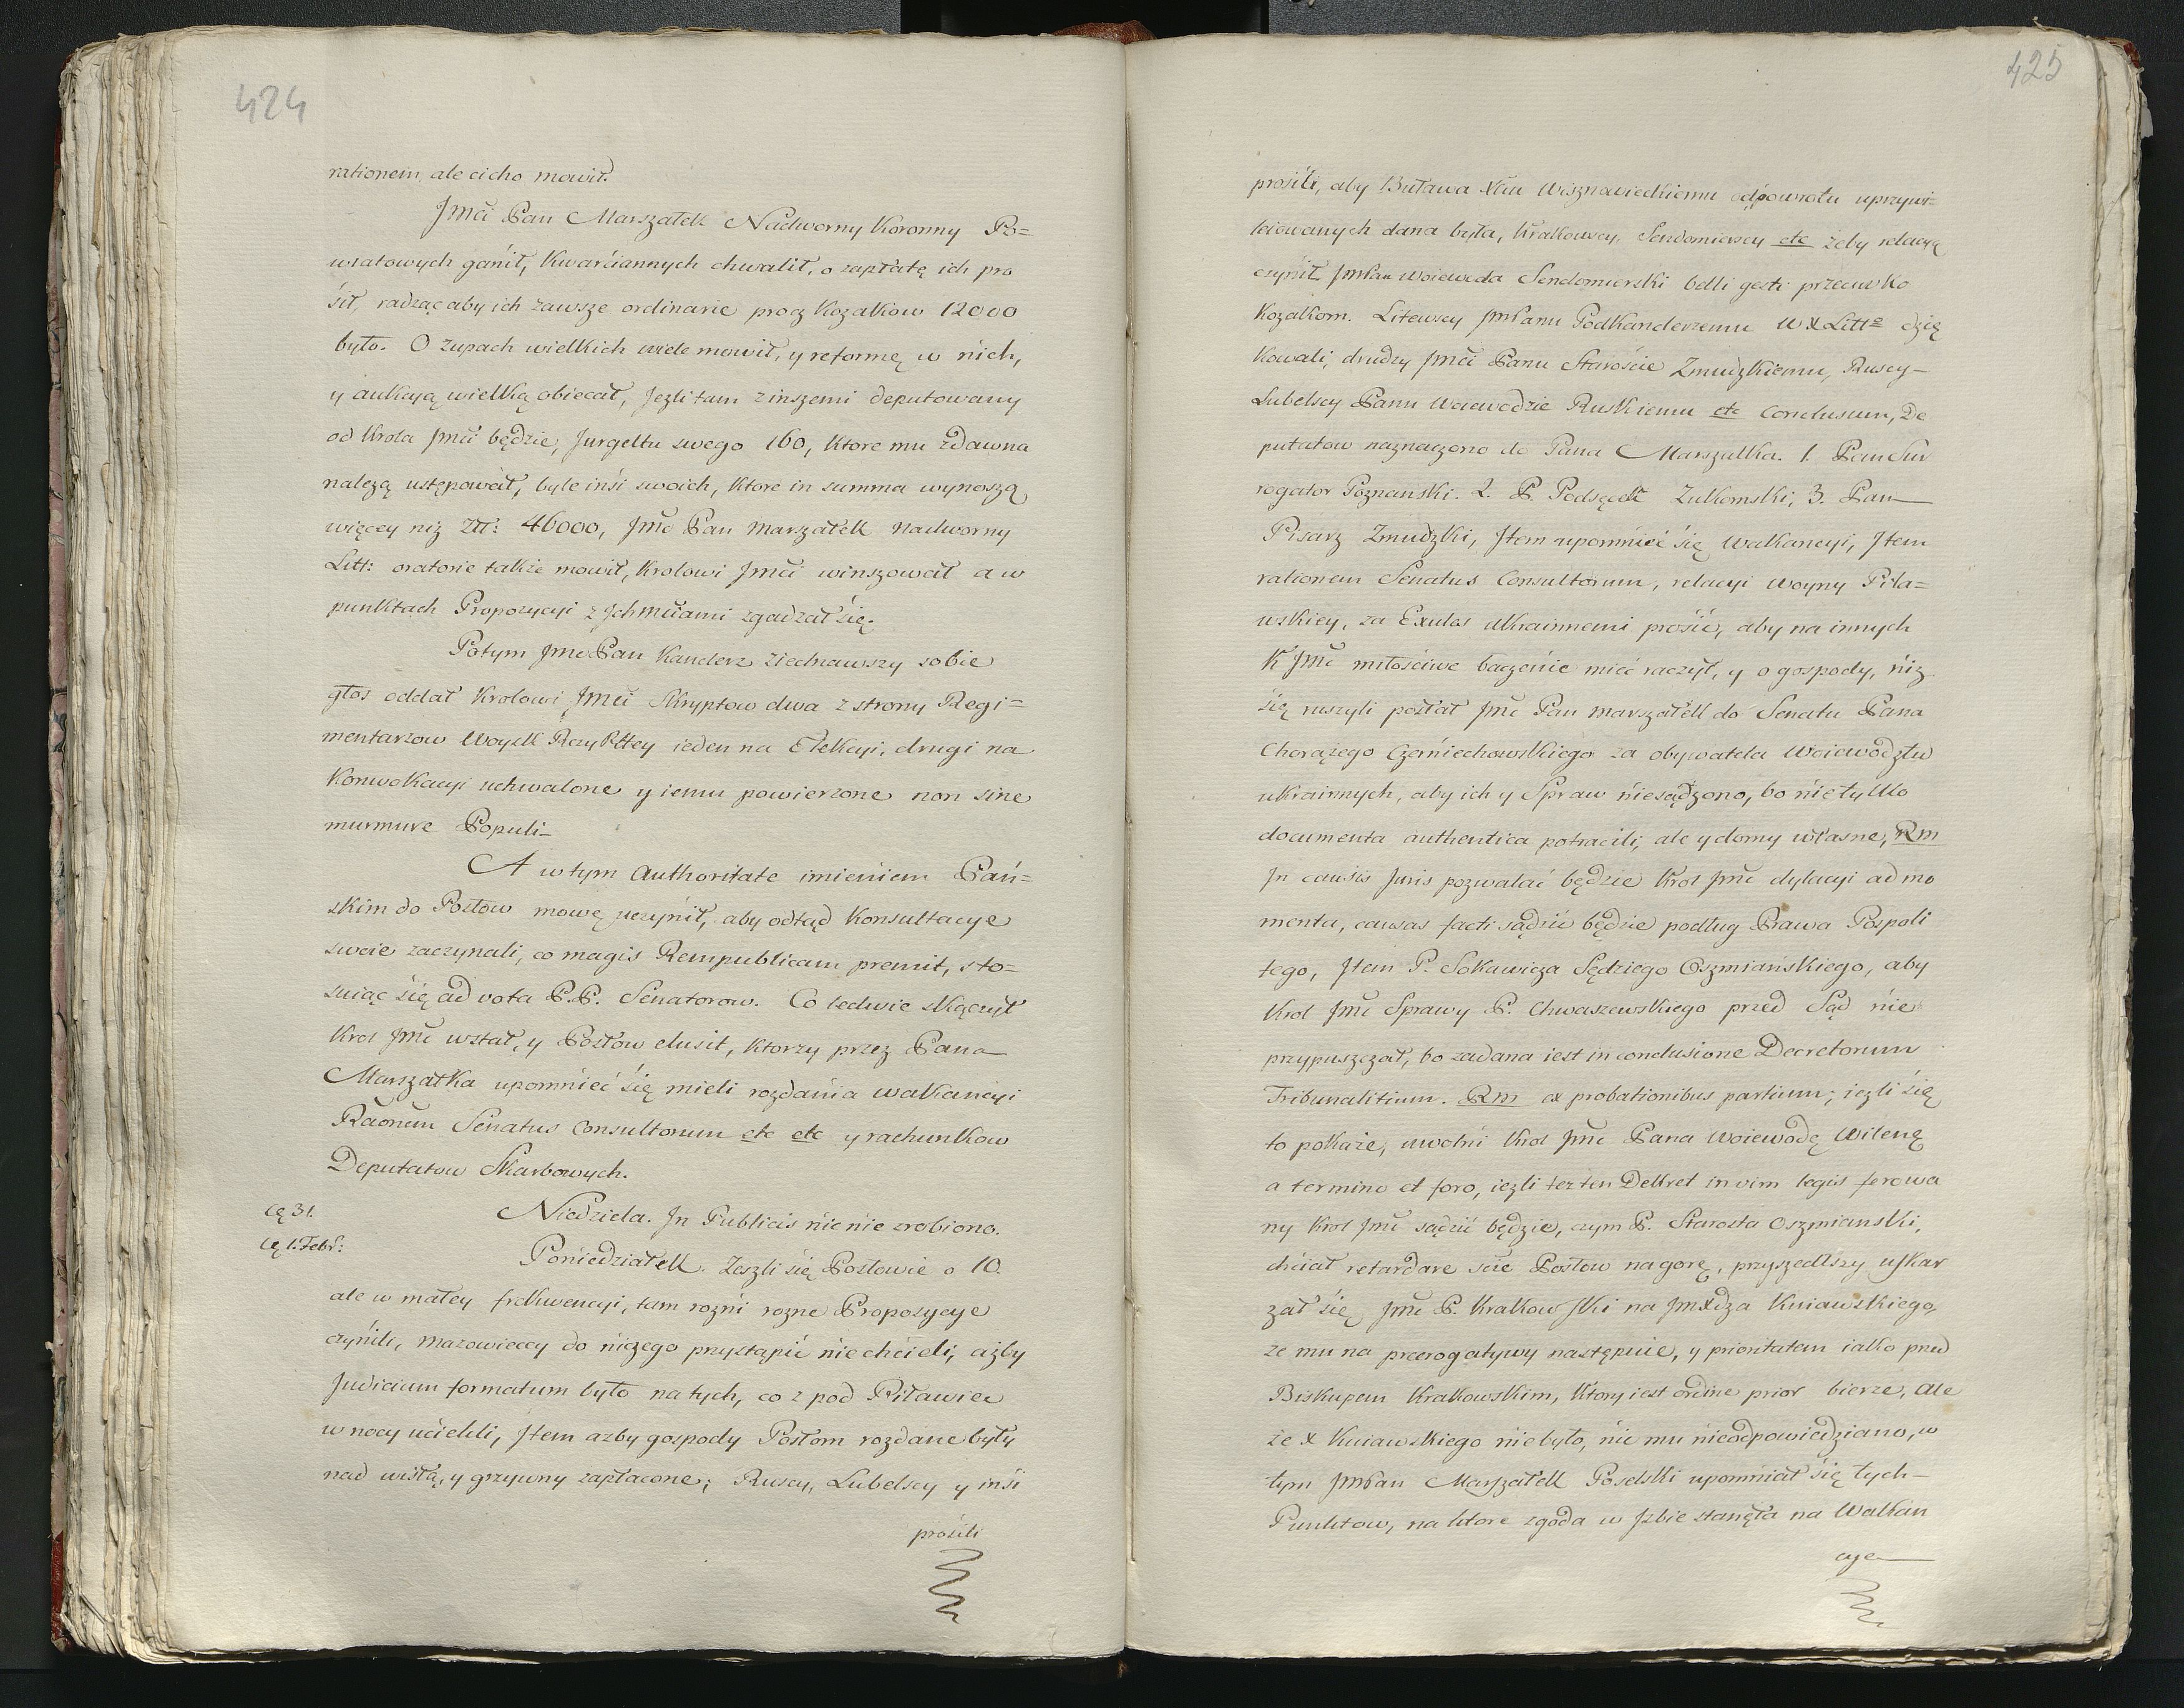 424
rationem ale cicho mowił.
Jmći Pan Marszałek Nadworny Koronny Po=
wiatowych ganił, Kwarćiannych chwalił, o zapłatę ich pro
śił, radząc aby ich zawsze ordinarie procz Kozakow 12000
było. O Zupach wielkich wiele mowił, y reformę w nich,
y aukcyą wielką obiecał, Jezli tam z inszemi deputowany
od Krola Jmći będzie, Jurgeltu swego 160, Ktore mu zdawna
nalezą ustępował, byle inśi swoich, Ktore in summa wynoszą
więcey niz Złł: 46000, Jmć Pan Marszałek Nadworny
Litt: oratorie także mowił, Krolowi Jmći winszował a w
punktach Propozycyi z Jchmćiami zgadzał się.
Potym Jmć Pan Kanclerz ziednawszy sobie
głos oddał Krolowi Jmći Skryptow dwa z strony Regi=
mentarzow Woysk RzyPttey ieden na Elekcyi, drugi na
Konwokacyi uchwalone y iemu powierzone non sine
murmure Populi_
A w tym Authoritate imieniem Pań=
skim do Posłow mowę uczynił, aby odtąd Konsultacye
swoie zaczynali, co magis Rempublicam premit, sto=
suiąc się ad vota P.P. Senatorow. Co ledwie skączył
Krol Jmć wstał, y Posłow elusit, Ktorzy przez Pana
Marszałka upomnieć się mieli rozdania wakancyi
Raonem Senatus Consultorum etc etc y rachunkow
Deputatow Skarbowych.
Cą 31. Niedziela. Jn Publicis nic nie zrobiono.
Cą 1. Febr: Poniedziałek. Zeszli się Posłowie o 10.
ale w małey frekwencyi, tam rozni rozne Propozycye
czynili, Mazowieccy do niczego przystąpić nie chcieli, ażby
Judicium formatum było na tych, co z pod Piławiec
w nocy ućiekli, Jtem azby gospody Posłom rozdane były
nad wisłą, y grzywny zapłacone; Ruscy, Lubelscy y inśi
prośili
425
prośili, aby Buława Xćiu Wiszniowieckiemu odpowrotu uprzywi=
leiowanych dana była, Krakowscy, Sendomierscy etc żeby relacyą
czynił JmPan Woiewoda Sendomierski belli gesti przeciwko
Kozakom. Litewscy JmPanu Podkanclerzemu W X Litto dzię
kowali, drudzy Jmći Panu Staroście Zmudzkiemu, Ruscy_
Lubelscy Panu Woiewodzie Ruskiemu etc Conclusum, De
putatow naznaczono do Pana Marszałka. 1. Pan Sur
rogator Poznanski. 2. P. Podsędek Zukomski; 3. Pan
Pisarz Zmudzki, Jtem upomnieć się Wakancyi, Jtem
rationem Senatus Consultorum, relacyi Woyny Piła=
wskiey, za Exules Ukrainnemi prośić, aby na innych
K Jmć miłościwe baczenie mieć raczył, y o gospody, niz
się ruszyli posłał Jmć Pan Marszałek do Senatu Pana
Chorążego Czerniechowskiego za obywatela Woiewodztw
Ukrainnych, aby ich y Spraw nie sądzono, bo nie tylko
documenta authentica potracili, ale y domy własne, Rm
Jn causis Juris pozwalać będzie Krol Jmć dylacyi ad mo
menta, causas facti sądzić będzie podług Prawa Pospoli
tego, Jtem P. Sokawicza Sędziego Oszmiańskiego, aby
Krol Jmć Sprawy P. Chwaszewskiego przed Sąd nie
przypuszczał, bo zadana iest in conclusione Decretorum
Tribunalitium. Rm ex probationibus partium; iezli się
to pokaże, uwolni Krol Jmć Pana Woiewodę Wilenę
a termino et foro, iezli tez ten Dekret in vim legis ferowa
ny Krol Jmć sądzić będzie, czym P. Starosta Oszmianski,
chciał retardare scie Posłow na gorę, przyszedłszy uskar
zał się Jmć P. Krakowski na JmXdza Kuiawskiego,
ze mu na prerogatywy następuie, y prioritatem iako przed
Biskupem Krakowskim, Ktory iest ordine prior bierze, ale
że X Kuiawskiego nie było, nic mu nieodpowiedziano, w
tym JmPan Marszałek Poselski upomniał się tych_
Punktow, na ktore zgoda w Jzbie stanęła na Wakan
cye